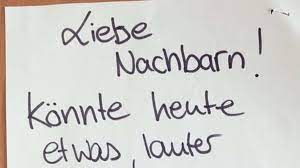 Liebe
Nachbarn!
Könnte heute
etwas lauter